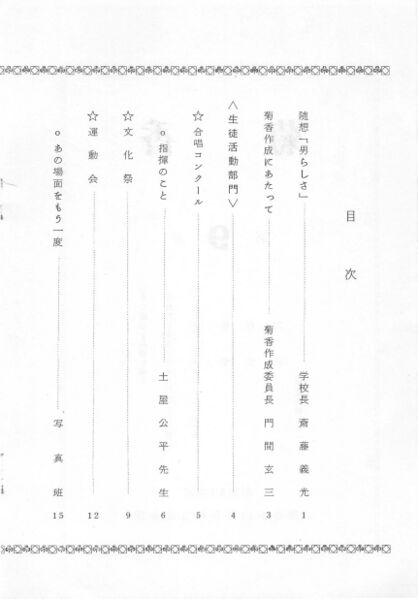 目次
随想「男らしさ」 学校長 斎藤義光 1
菊香作成にあたって 菊香作成委員長 門間玄三 3
〈生徒活動部門〉 4
☆合唱コンクール 5
o 指揮のこと 土屋公平先生 6
☆文化祭 9
☆運動会 12
o あの場面をもう一度 写真班 15